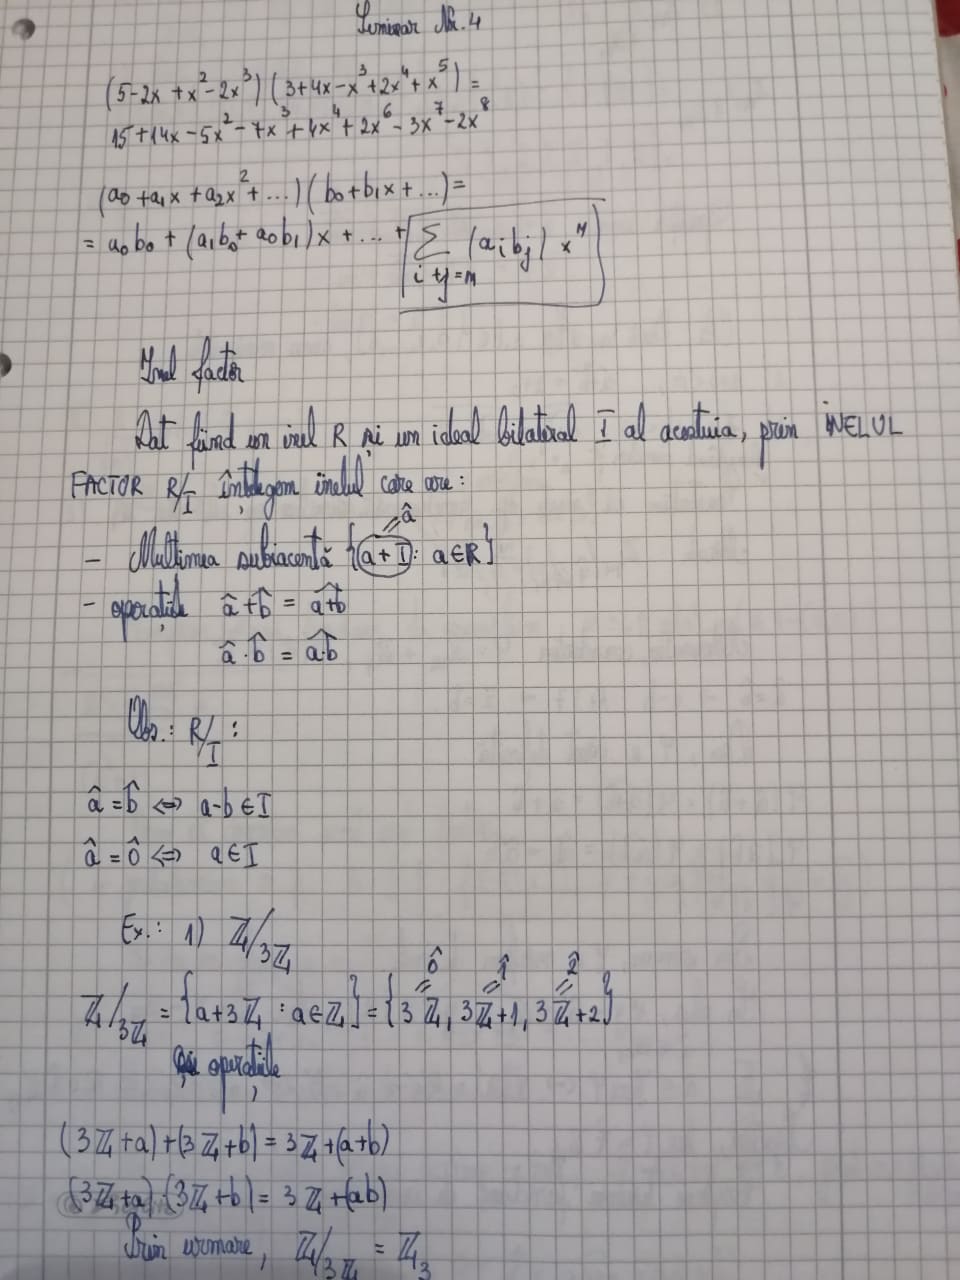 Seminar Nr. 4
(5-2x+x²-2x³)(3+4x-x³+2x⁴+x⁵)=
15+14x-5x²-7x³+4x⁴+2x⁶-3x⁷-2x⁸
(a₀+a₁x+a₂x²+...)(b₀+b₁x+...)=
= a₀b₀+(a₁b₀+a₀b₁)x+...+ ∑ (aᵢbⱼ) xⁿ
i+j=n
Inel factor
Dat fiind un inel R și un ideal bilateral I al acestuia, prin INELUL
FACTOR R/I înțelegem inelul care are:
= â
- Mulțimea subiacentă {a+I : a∈R}
- operațiile â+b̂ = \widehat{a+b}
â·b̂ = \widehat{a·b}
Obs.: R/I :
â=b̂ ⇔ a-b∈I
â=0̂ ⇔ a∈I
Ex.: 1) ℤ/3ℤ
0̂ 1̂ 2̂
ℤ/3ℤ = {a+3ℤ : a∈ℤ} = {3ℤ, 3ℤ+1, 3ℤ+2}
și operațiile
(3ℤ+a)+(3ℤ+b)=3ℤ+(a+b)
(3ℤ+a)·(3ℤ+b)=3ℤ+(ab)
Prin urmare, ℤ/3ℤ = ℤ₃